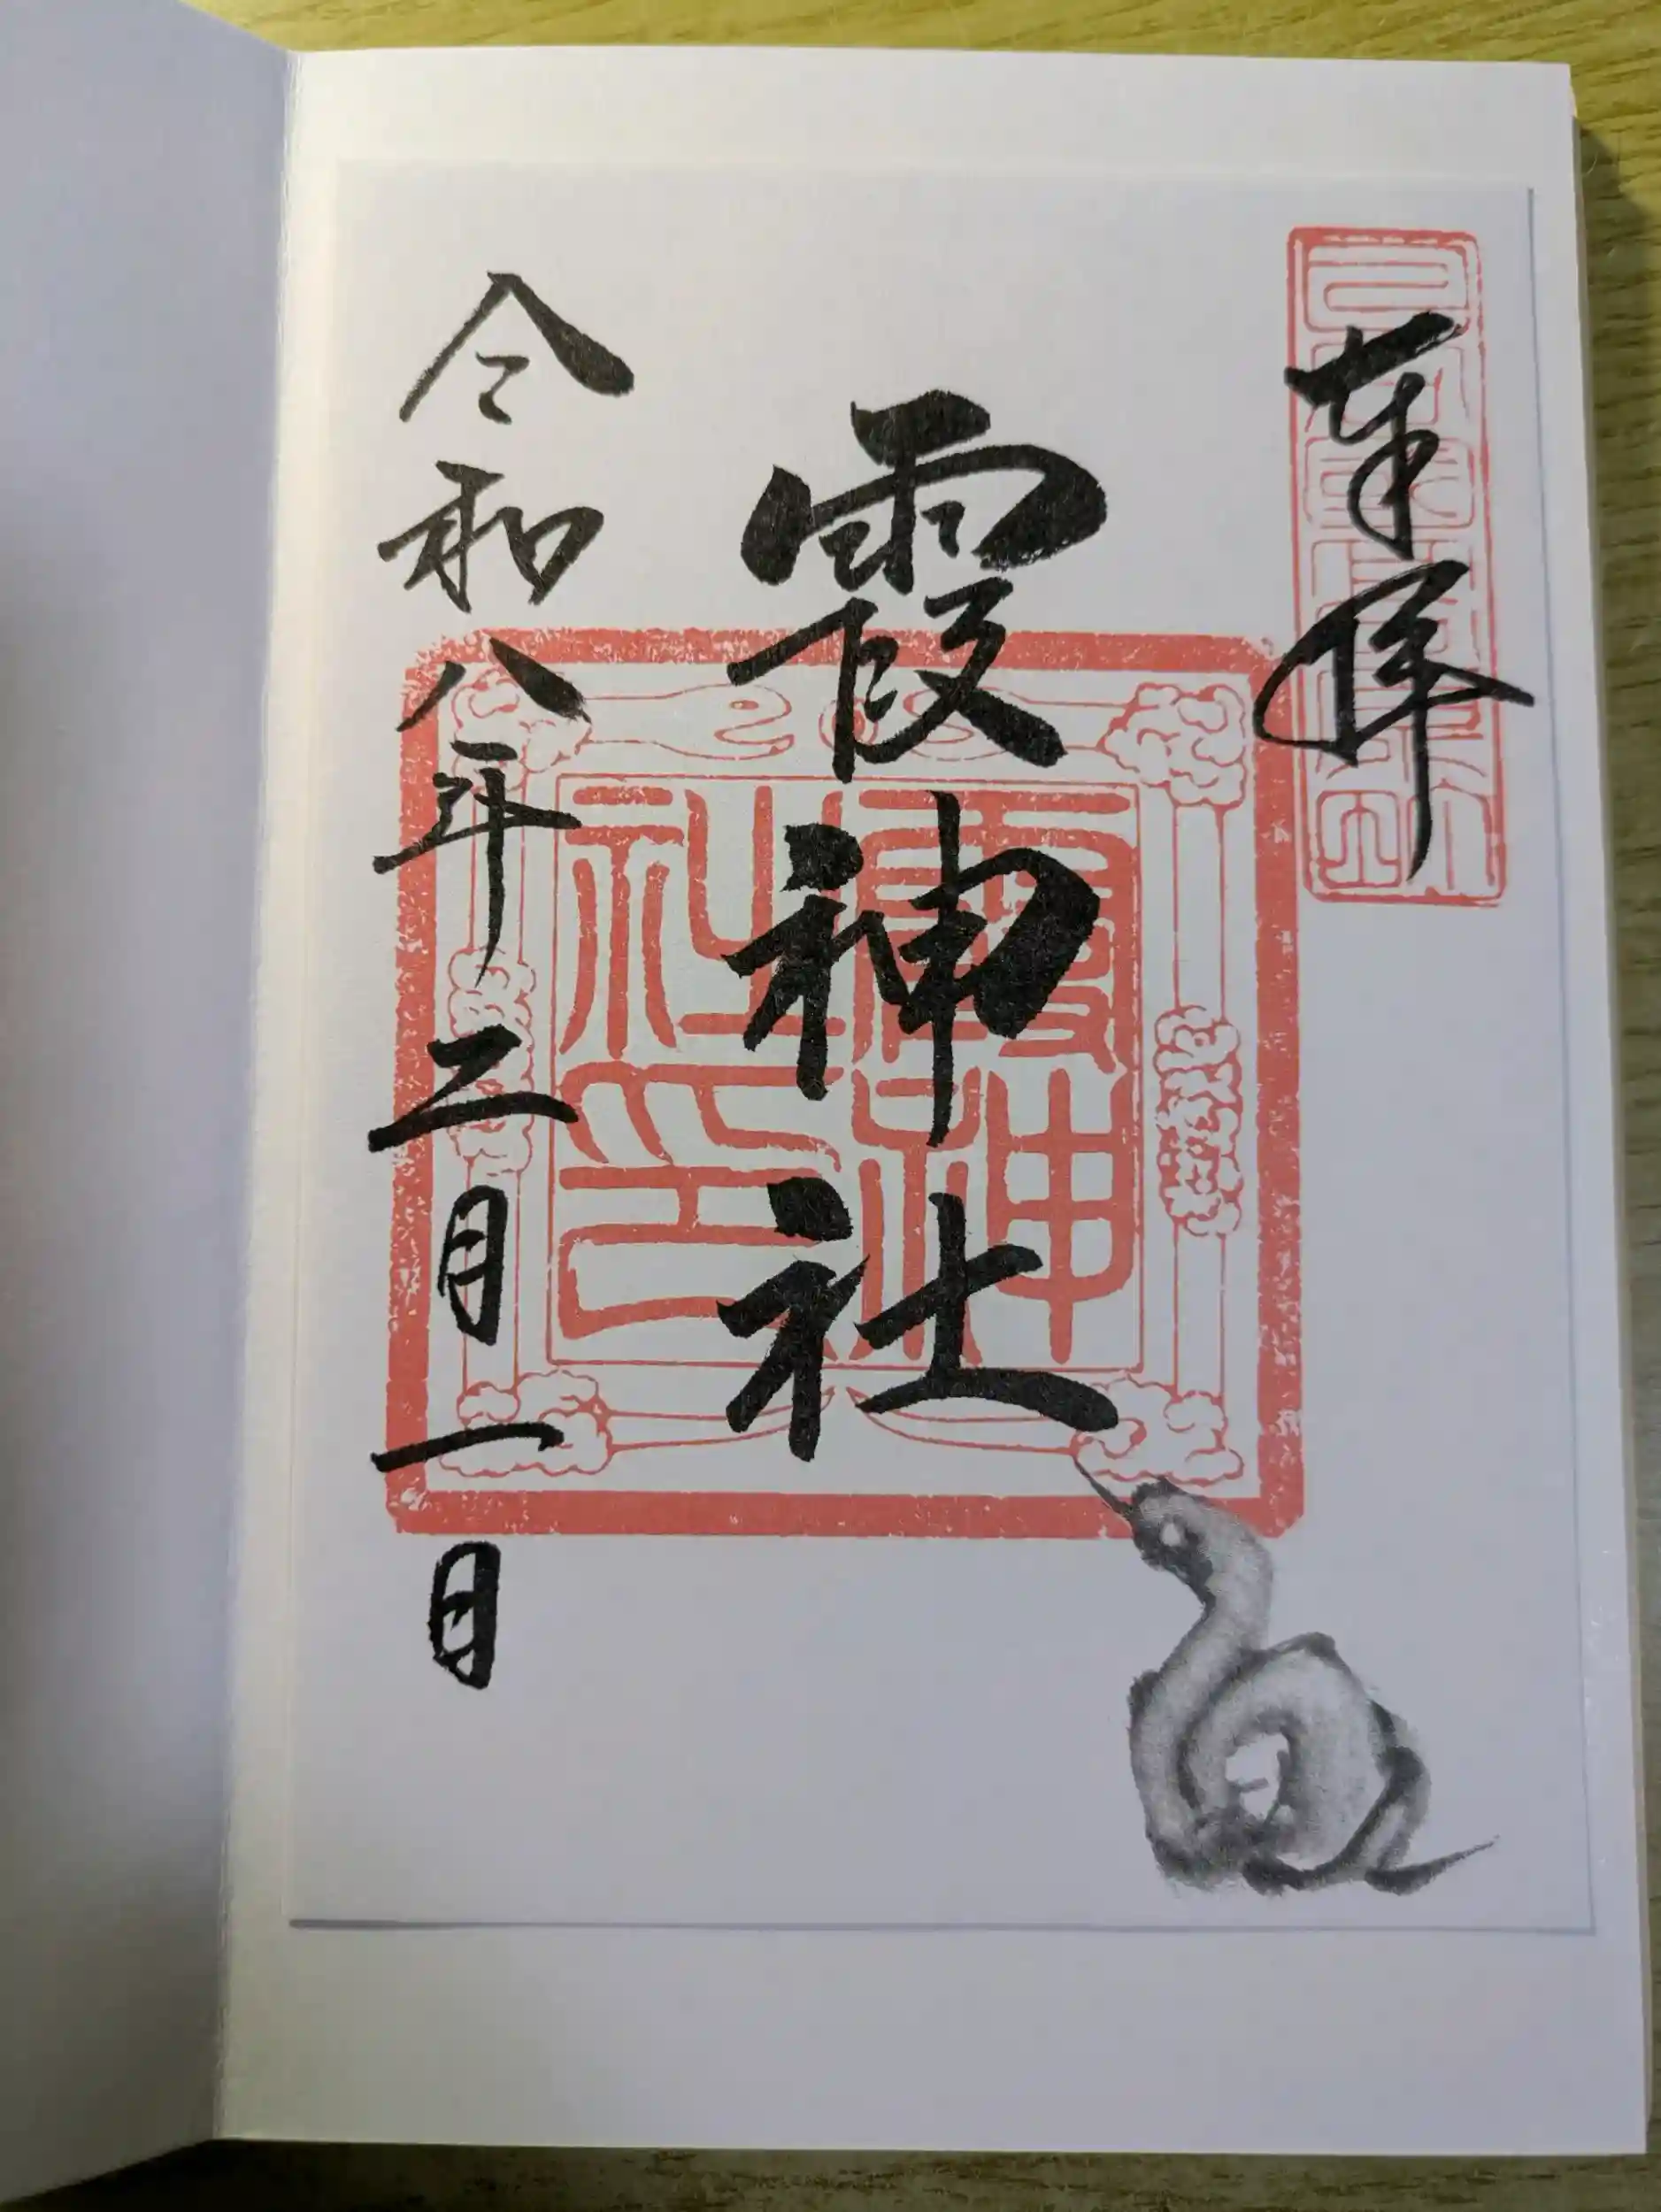 奉拝
霞神社
霞神社印
令和八年二月一日